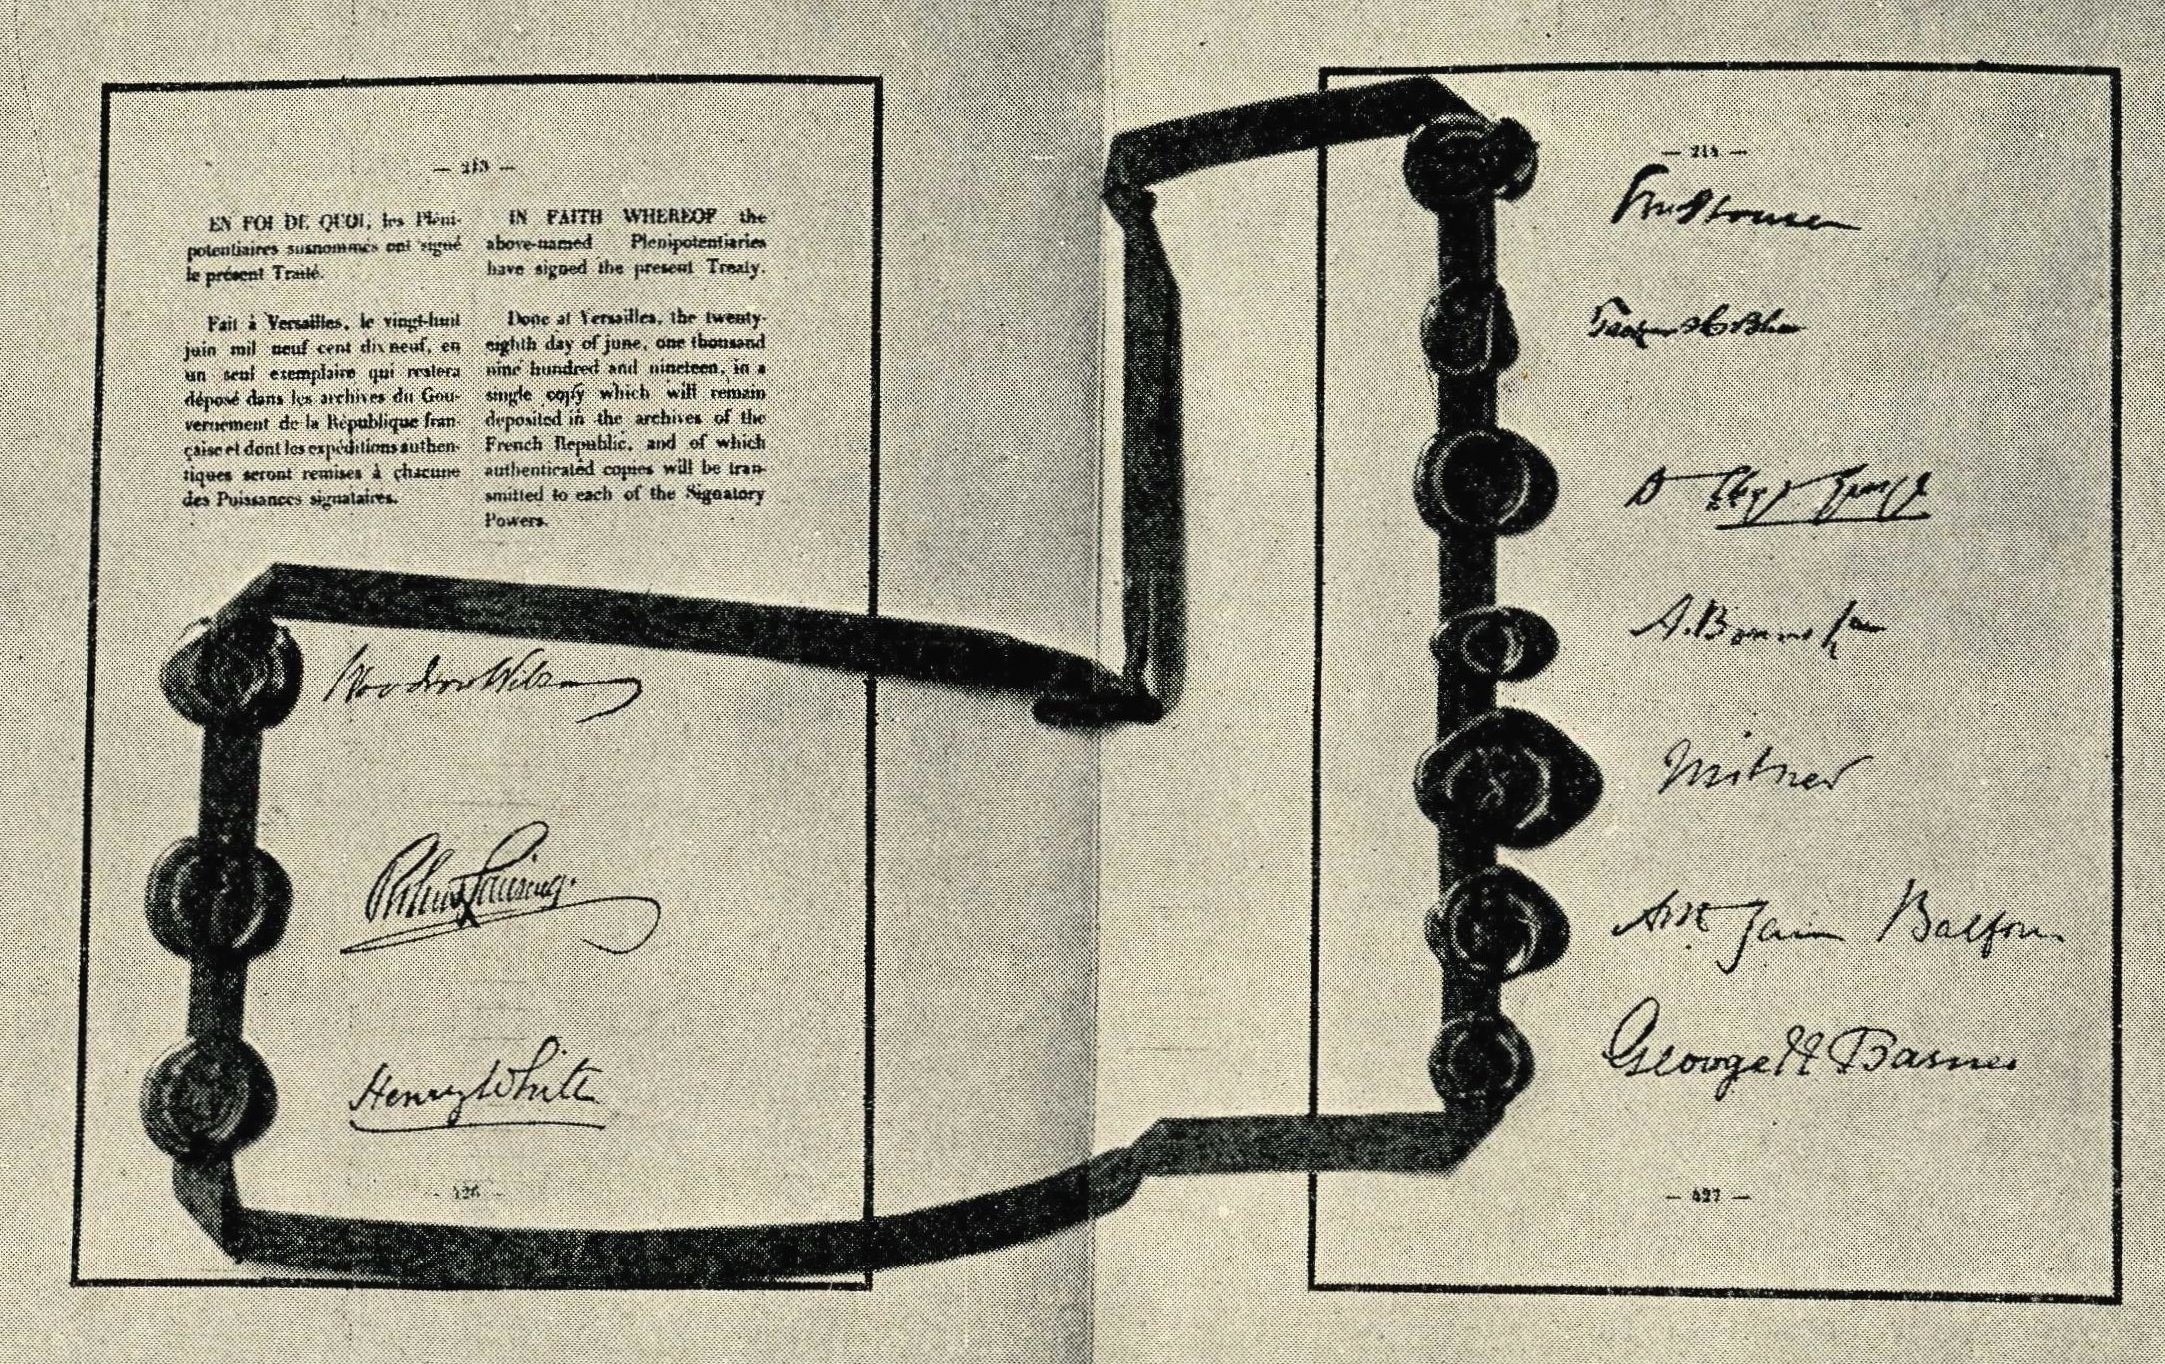 — 213 —
EN FOI DE QUOI, les Pléni-
potentiaires susnommés ont signé
le présent Traité.
Fait à Versailles, le vingt-huit
juin mil neuf cent dix neuf, en
un seul exemplaire qui restera
déposé dans les archives du Gou-
vernement de la République fran-
çaise et dont les expéditions authen-
tiques seront remises à chacune
des Puissances signataires.
IN FAITH WHEREOF the
above-named Plenipotentiaries
have signed the present Treaty.
Done at Versailles, the twenty-
eighth day of june, one thousand
nine hundred and nineteen, in a
single copy which will remain
deposited in the archives of the
French Republic, and of which
authenticated copies will be tran-
smitted to each of the Signatory
Powers.
Woodrow Wilson
Robert Lansing.
Henry White
— 426 —
— 214 —
D Lloyd George
A. Bonar Law
Milner
Arthur James Balfour
George N Barnes
— 427 —